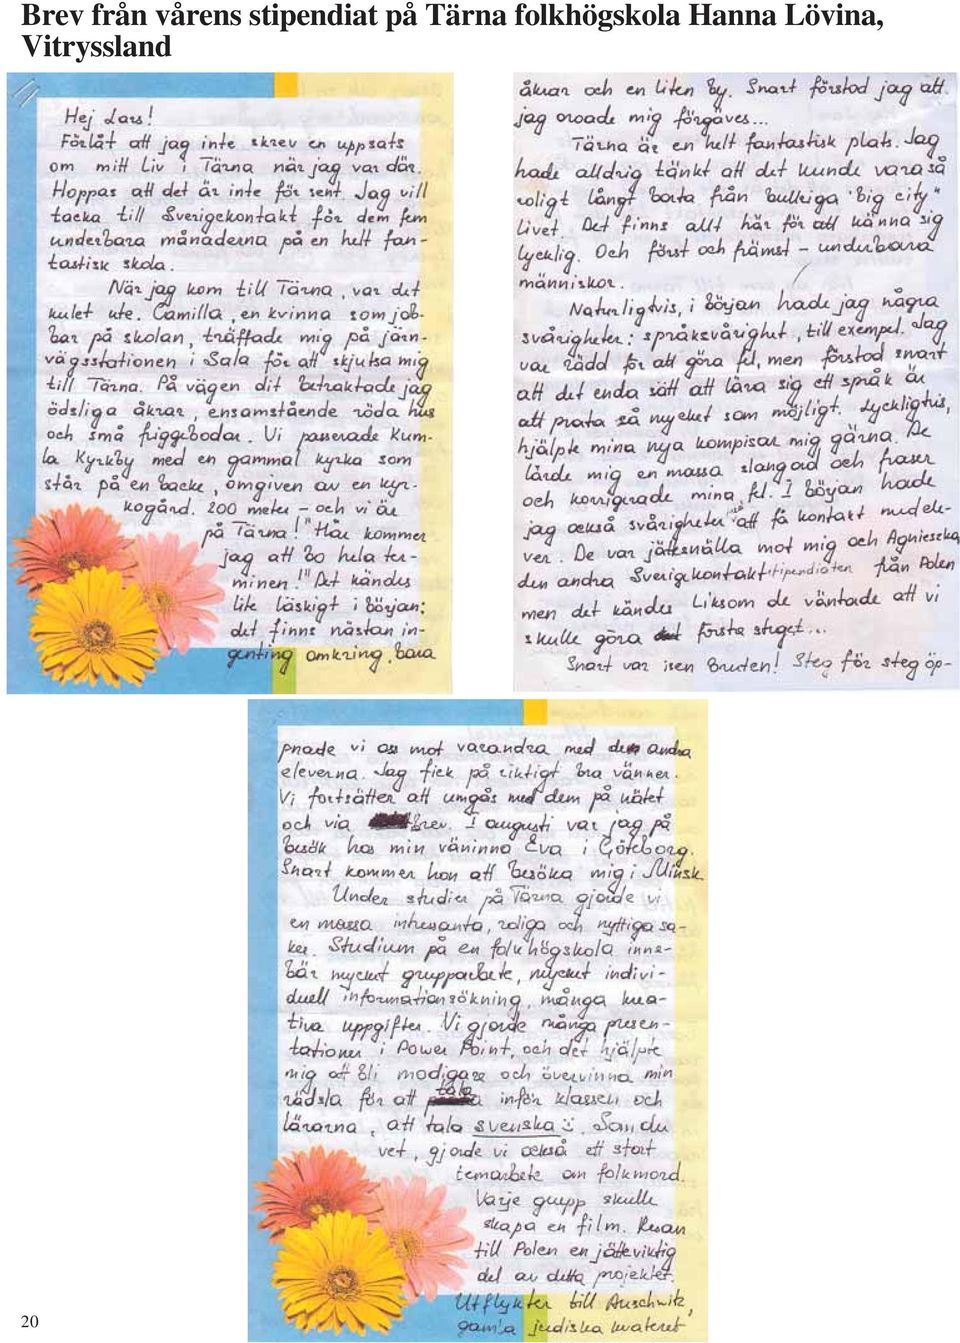 Brev från vårens stipendiat på Tärna folkhögskola Hanna Lövina,
Vitryssland
Hej Lars!
Förlåt att jag inte skrev en uppsats
om mitt Liv i Tärna när jag var där.
Hoppas att det är inte för sent. Jag vill
tacka till Sverigekontakt för dem fem
underbara månaderna på en helt fan-
tastisk skola.
När jag kom till Tärna, var det
kulet ute. Camilla, en kvinna som job-
bar på skolan, träffade mig på järn-
vägsstationen i Sala för att skjutsa mig
till Tärna. På vägen dit betraktade jag
ödsliga åkrar, ensamstående röda hus
och små friggebodar. Vi passerade Kum-
la Kyrkby med en gammal kyrka som
står på en backe, omgiven av en kyr-
kogård. 200 meter – och vi är
på Tärna! "Här kommer
jag att bo hela ter-
minen!" Det kändes
lite läskigt i början:
det finns nästan in-
genting omkring, bara
åkrar och en liten by. Snart förstod jag att
jag oroade mig förgäves...
Tärna är en helt fantastisk plats. Jag
hade aldrig tänkt att det kunde vara så
roligt långt borta från bulleriga "big city"
livet. Det finns allt här för att känna sig
lycklig. Och först och främst – underbara
människor.
Naturligtvis, i början hade jag några
svårigheter: språksvårighet, till exempel. Jag
var rädd för att göra fel, men förstod snart
att det enda sätt att lära sig ett språk är
att prata så mycket som möjligt. Lyckligtvis,
hjälpte mina nya kompisar mig gärna. De
lärde mig en massa slangord och fraser
och korrigerade mina fel. I början hade
jag också svårigheter att få kontakt med ele-
ver. De var jättesnälla mot mig och Agnieszka,
den andra Sverigekontaktstipendiaten från Polen
men det kändes liksom de väntade att vi
skulle göra första steget...
Snart var isen bruten! Steg för steg öp-
pnade vi oss mot varandra med de andra
eleverna. Jag fick på riktigt bra vänner.
Vi fortsätter att umgås med dem på nätet
och via brev. I augusti var jag på
besök hos min väninna Eva i Göteborg.
Snart kommer hon att besöka mig i Minsk.
Under studier på Tärna gjorde vi
en massa intressanta, roliga och nyttiga sa-
ker. Studium på en folkhögskola inne-
bär mycket grupparbete, mycket indivi-
duell informationsökning, många krea-
tiva uppgifter. Vi gjorde många presen-
tationer i Power Point, och det hjälpte
mig att bli modigare och övervinna min
rädsla för att tala inför klassen och
lärarna, att tala svenska :). Som du
vet, gjorde vi också ett stort
temarbete om folkmord.
Varje grupp skulle
skapa en film. Resan
till Polen en jätteviktig
del av detta projektet.
Utflykter till Auschwitz,
gamla judiska kvarteret
20